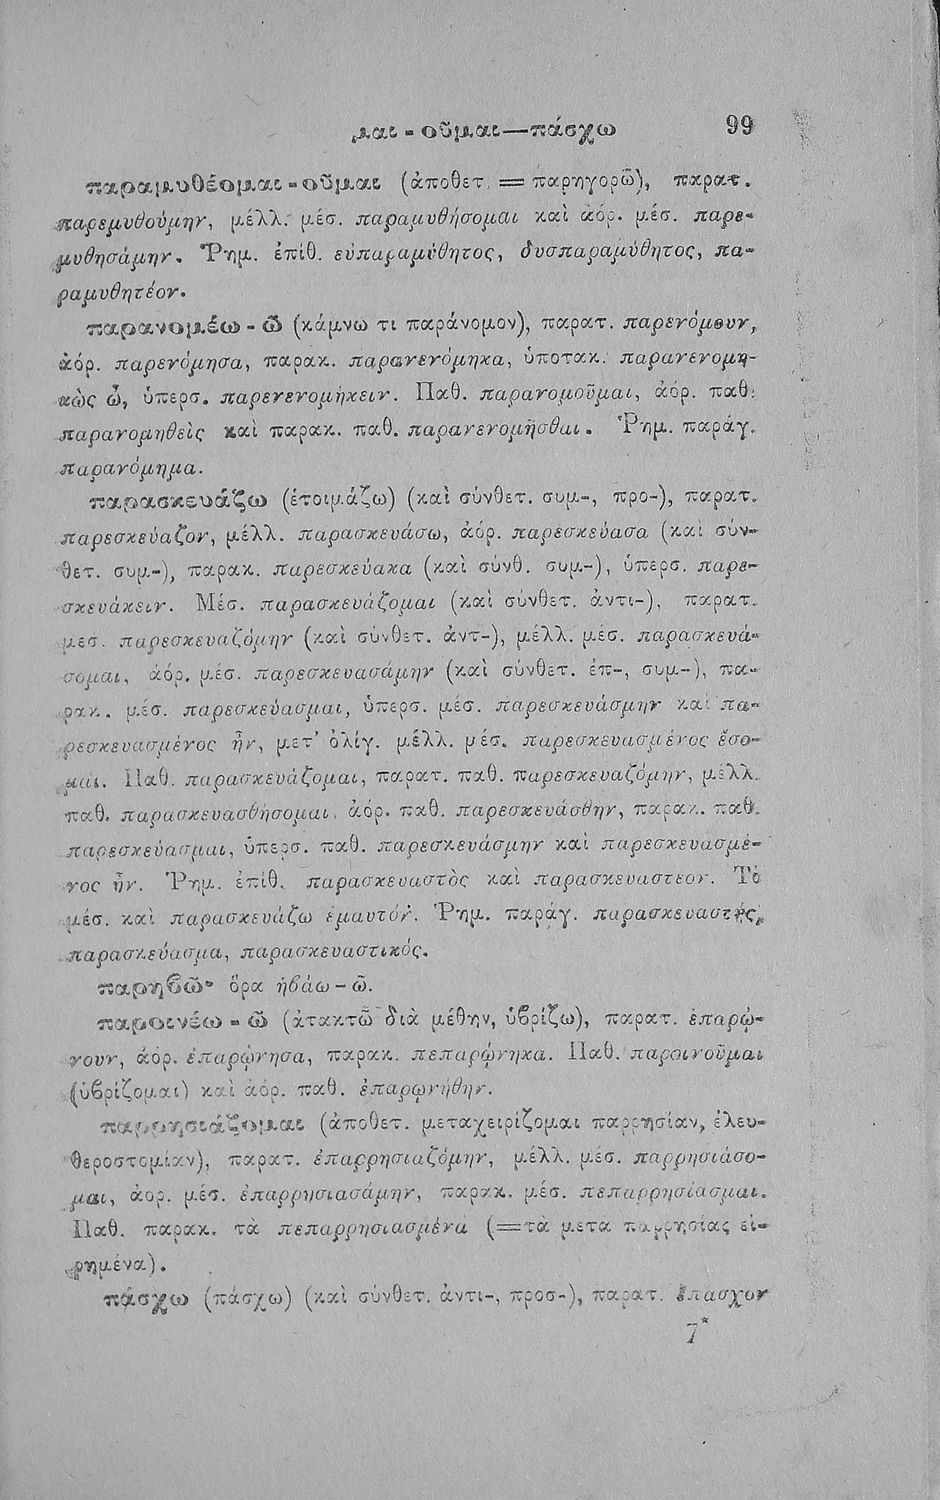 μαι - οῦμαι—πάσχω 99
παραμυθέομαι - οῦμαι (ἀποθετ. = παρηγορῶ), παρατ.
παρεμυθούμην, μέλλ. μέσ. παραμυθήσομαι καὶ ἀόρ. μέσ. παρε-
μυθησάμην. Ῥημ. ἐπίθ. εὐπαραμύθητος, δυσπαραμύθητος, πα-
ραμυθητέον.
παρανομέω - ῶ (κάμνω τι παράνομον), παρατ. παρενόμουν,
ἀόρ. παρενόμησα, παρακ. παρανενόμηκα, ὑποτακ. παρανενομη-
κὼς ὦ, ὑπερσ. παρενενομήκειν. Παθ. παρανομοῦμαι, ἀόρ. παθ.
παρανομηθεὶς καὶ παρακ. παθ. παρανενομῆσθαι. Ῥημ. παράγ.
παρανόμημα.
παρασκευάζω (ἑτοιμάζω) (καὶ σύνθετ. συμ-, προ-), παρατ.
παρεσκεύαζον, μέλλ. παρασκευάσω, ἀόρ. παρεσκεύασα (καὶ σύν-
θετ. συμ-), παρακ. παρεσκεύακα (καὶ σύνθ. συμ-), ὑπερσ. παρε-
σκευάκειν. Μέσ. παρασκευάζομαι (καὶ σύνθετ. ἀντι-), παρατ.
μεσ. παρεσκευαζόμην (καὶ σύνθετ. ἀντ-), μέλλ. μέσ. παρασκευά-
σομαι, ἀόρ. μέσ. παρεσκευασάμην (καὶ σύνθετ. ἐπ-, συμ-), πα-
ρακ. μέσ. παρεσκεύασμαι, ὑπερσ. μέσ. παρεσκευάσμην καὶ πα-
ρεσκευασμένος ἦν, μετ’ ὀλίγ. μέλλ. μέσ. παρεσκευασμένος ἔσο-
μαι. Παθ. παρασκευάζομαι, παρατ. παθ. παρεσκευαζόμην, μέλλ.
παθ. παρασκευασθήσομαι, ἀόρ. παθ. παρεσκευάσθην, παρακ. παθ.
παρεσκεύασμαι, ὑπερσ. παθ. παρεσκευάσμην καὶ παρεσκευασμέ-
νος ἦν. Ῥημ. ἐπίθ. παρασκευαστὸς καὶ παρασκευαστέον. Τὸ
μέσ. καὶ παρασκευάζω ἐμαυτόν. Ῥημ. παράγ. παρασκευαστής,
παρασκεύασμα, παρασκευαστικός.
παρηβῶ· ὅρα ἡβάω - ῶ.
παροινέω - ῶ (ἀτακτῶ διὰ μέθην, ὑβρίζω), παρατ. ἐπαρῴ-
νουν, ἀόρ. ἐπαρῴνησα, παρακ. πεπαρῴνηκα. Παθ. παροινοῦμαι
(ὑβρίζομαι) καὶ ἀόρ. παθ. ἐπαρῳνήθην.
παρρησιάζομαι (ἀποθετ. μεταχειρίζομαι παρρησίαν, ἐλευ-
θεροστομίαν), παρατ. ἐπαρρησιαζόμην, μέλλ. μέσ. παρρησιάσο-
μαι, ἀορ. μέσ. ἐπαρρησιασάμην, παρακ. μέσ. πεπαρρησίασμαι.
Παθ. παρακ. τὰ πεπαρρησιασμένα (=τὰ μετα παρρησίας εἰ-
ρημένα).
πάσχω (πάσχω) (καὶ σύνθετ. ἀντι-, προσ-), παρατ. ἔπασχον
7*